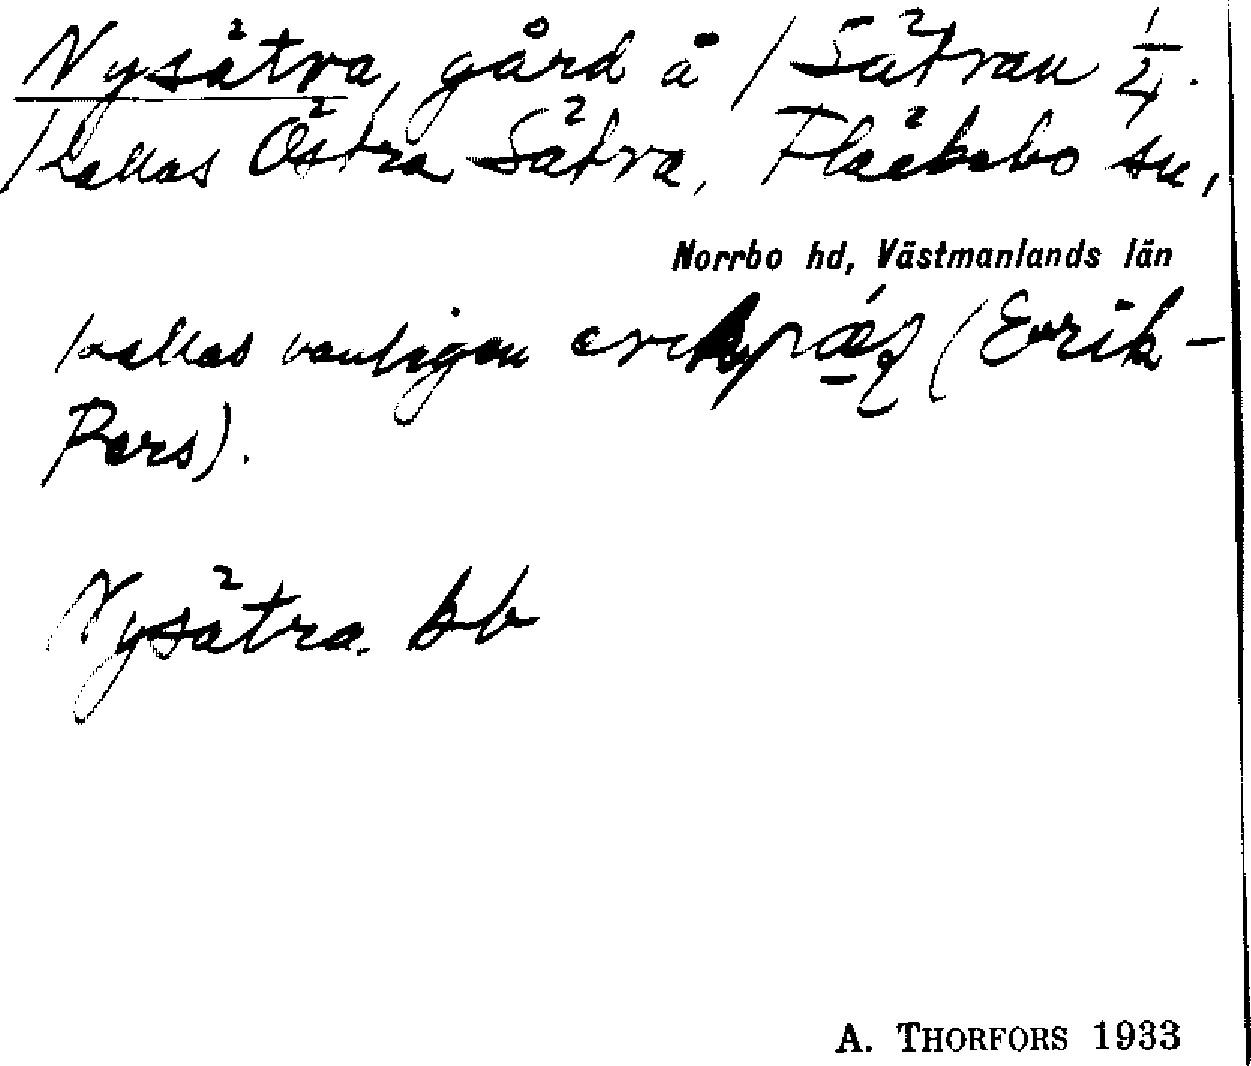 Nysätra, gård å /Sätran 1/4.
/kallas Östra Sätra, Fläckebo sn,
Norrbo hd, Västmanlands län
kallas vanligen (Erik-
Pers).
Nysätra. kb
A. THORFORS 1933